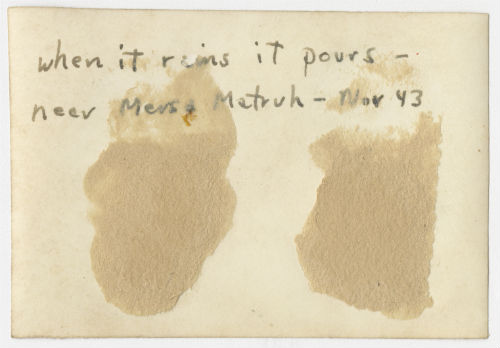 when it rains it pours -
near Mersa Matruh - Nov 43